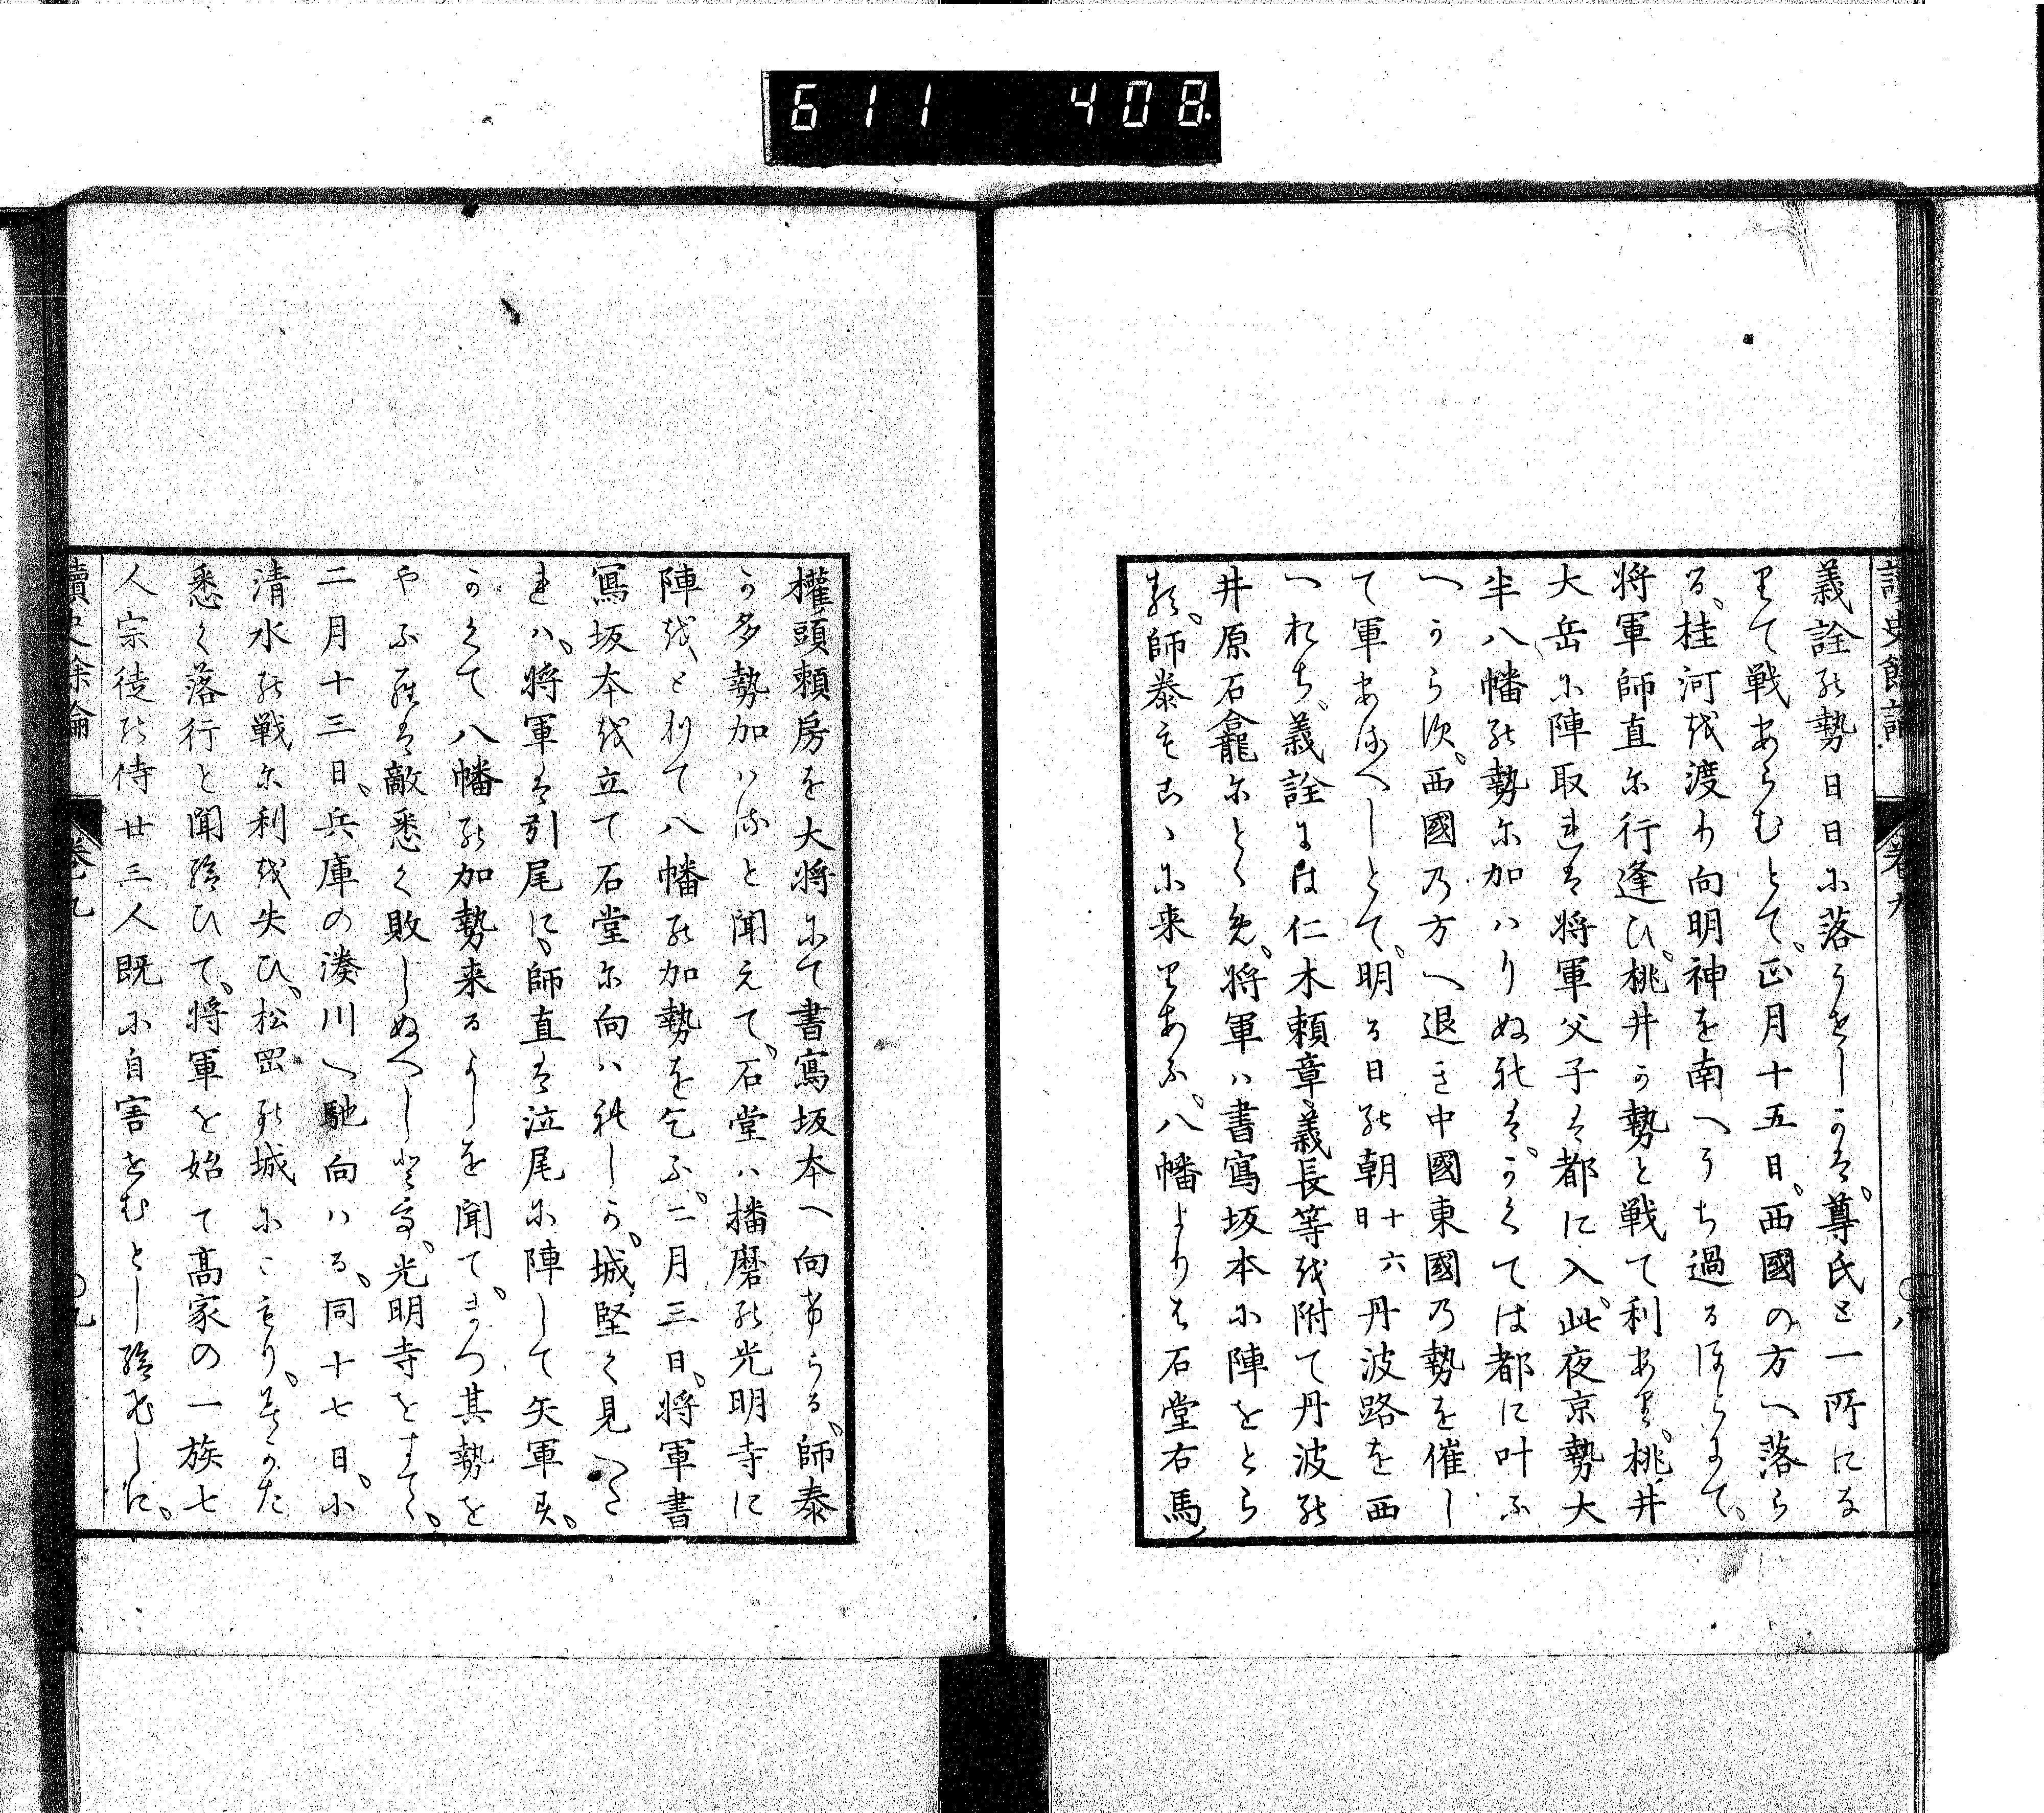 611 408.
義詮の勢日日に落うせしかは、尊氏と一所にな
りて戦あらむとて、正月十五日、西國の方へ落ら
る、桂河を渡り向明神を南へうち過るほとにて、
将軍師直に行逢ひ、桃井か勢と戦て利あり、桃井
大岳に陣取れは将軍父子は都に入、此夜京勢大
半八幡の勢に加ハりぬれは、かくては都に叶ふ
へからす、西國の方へ退き中國東國の勢を催し
て軍あるへしとて、明る日の朝十六日丹波路を西
へおち、義詮には仁木頼章義長等を附て丹波の
井原石龕にとゝめ、将軍ハ書寫坂本に陣をとら
る、師泰もこゝに来りあふ、八幡よりは石堂右馬
權頭頼房を大将にて書寫坂本へ向けらる、師泰
か多勢加ハると聞えて、石堂ハ播磨の光明寺に
陣をとりて八幡の加勢を乞ふ、二月三日、将軍書
寫坂本を立て石堂に向ハれしか、城堅く見へさ
れハ、将軍は引尾に、師直は泣尾に陣して矢軍す、
かくて八幡の加勢来るよしを聞て、まつ其勢を
やふらは敵悉く敗しぬへしとて、光明寺をすてゝ、
二月十三日、兵庫の湊川へ馳向ハる、同十七日、小
清水の戦に利を失ひ、松岡の城にこもり、 かた
悉く落行と聞給ひて、将軍を始て髙家の一族七
人宗徒の侍廿三人既に自害せむとし給ひしに、
讀史餘論 卷九 〇九